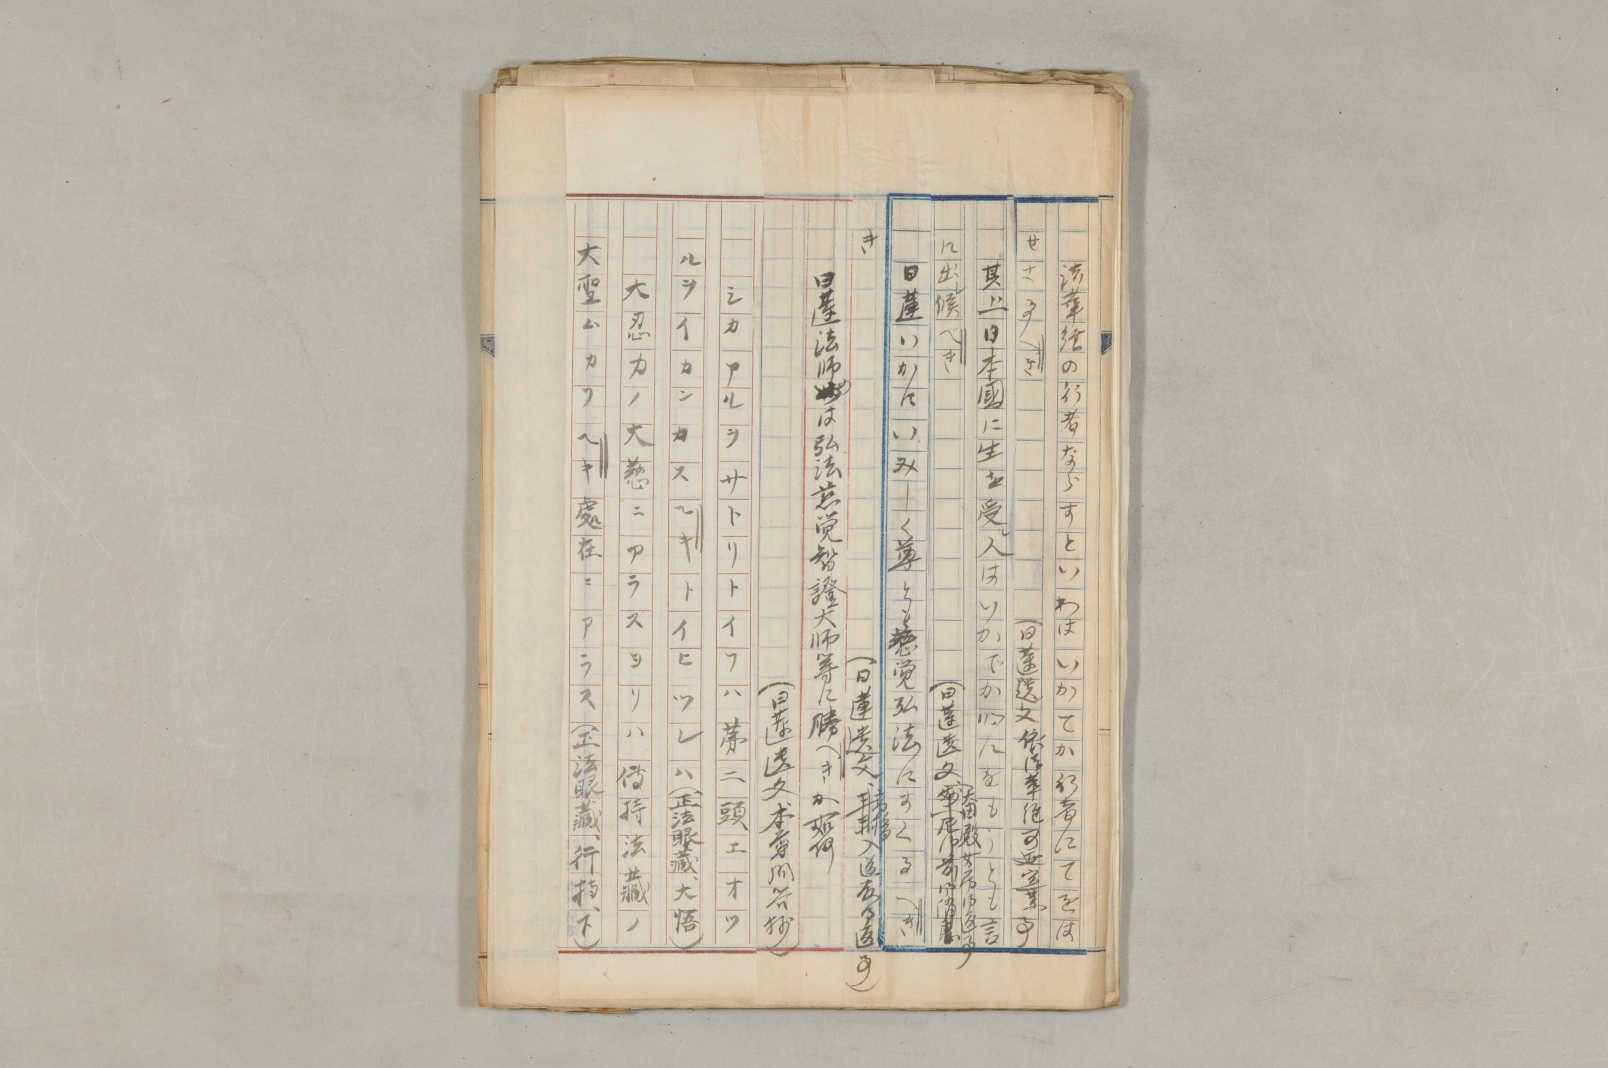 法華経の行者ならすといわはいかてか行者にてをは
せさるへき
（日蓮遺文
其上日本國に生を受人はいかでか心にをもうとも言
に出候べき
（日蓮遺文
太田殿女房御返事
日蓮いかにいみしく尊くとも慈覚弘法にすくるへき
（日蓮遺文、 入道殿御返事）
き
日蓮法師めは弘法慈覚智證大師等に勝へきか如何
（日蓮遺文本尊問答抄）
シカアルヲサトリトイフハ第二頭エオツ
ルヲイカンカスヘキトイヒツレハ（正法眼藏、大悟）
大忍力ノ大慈ニアラスヨリハ傳持法藏ノ
大聖ムカフヘキ處在ニアラス（正法眼藏、行持、下）